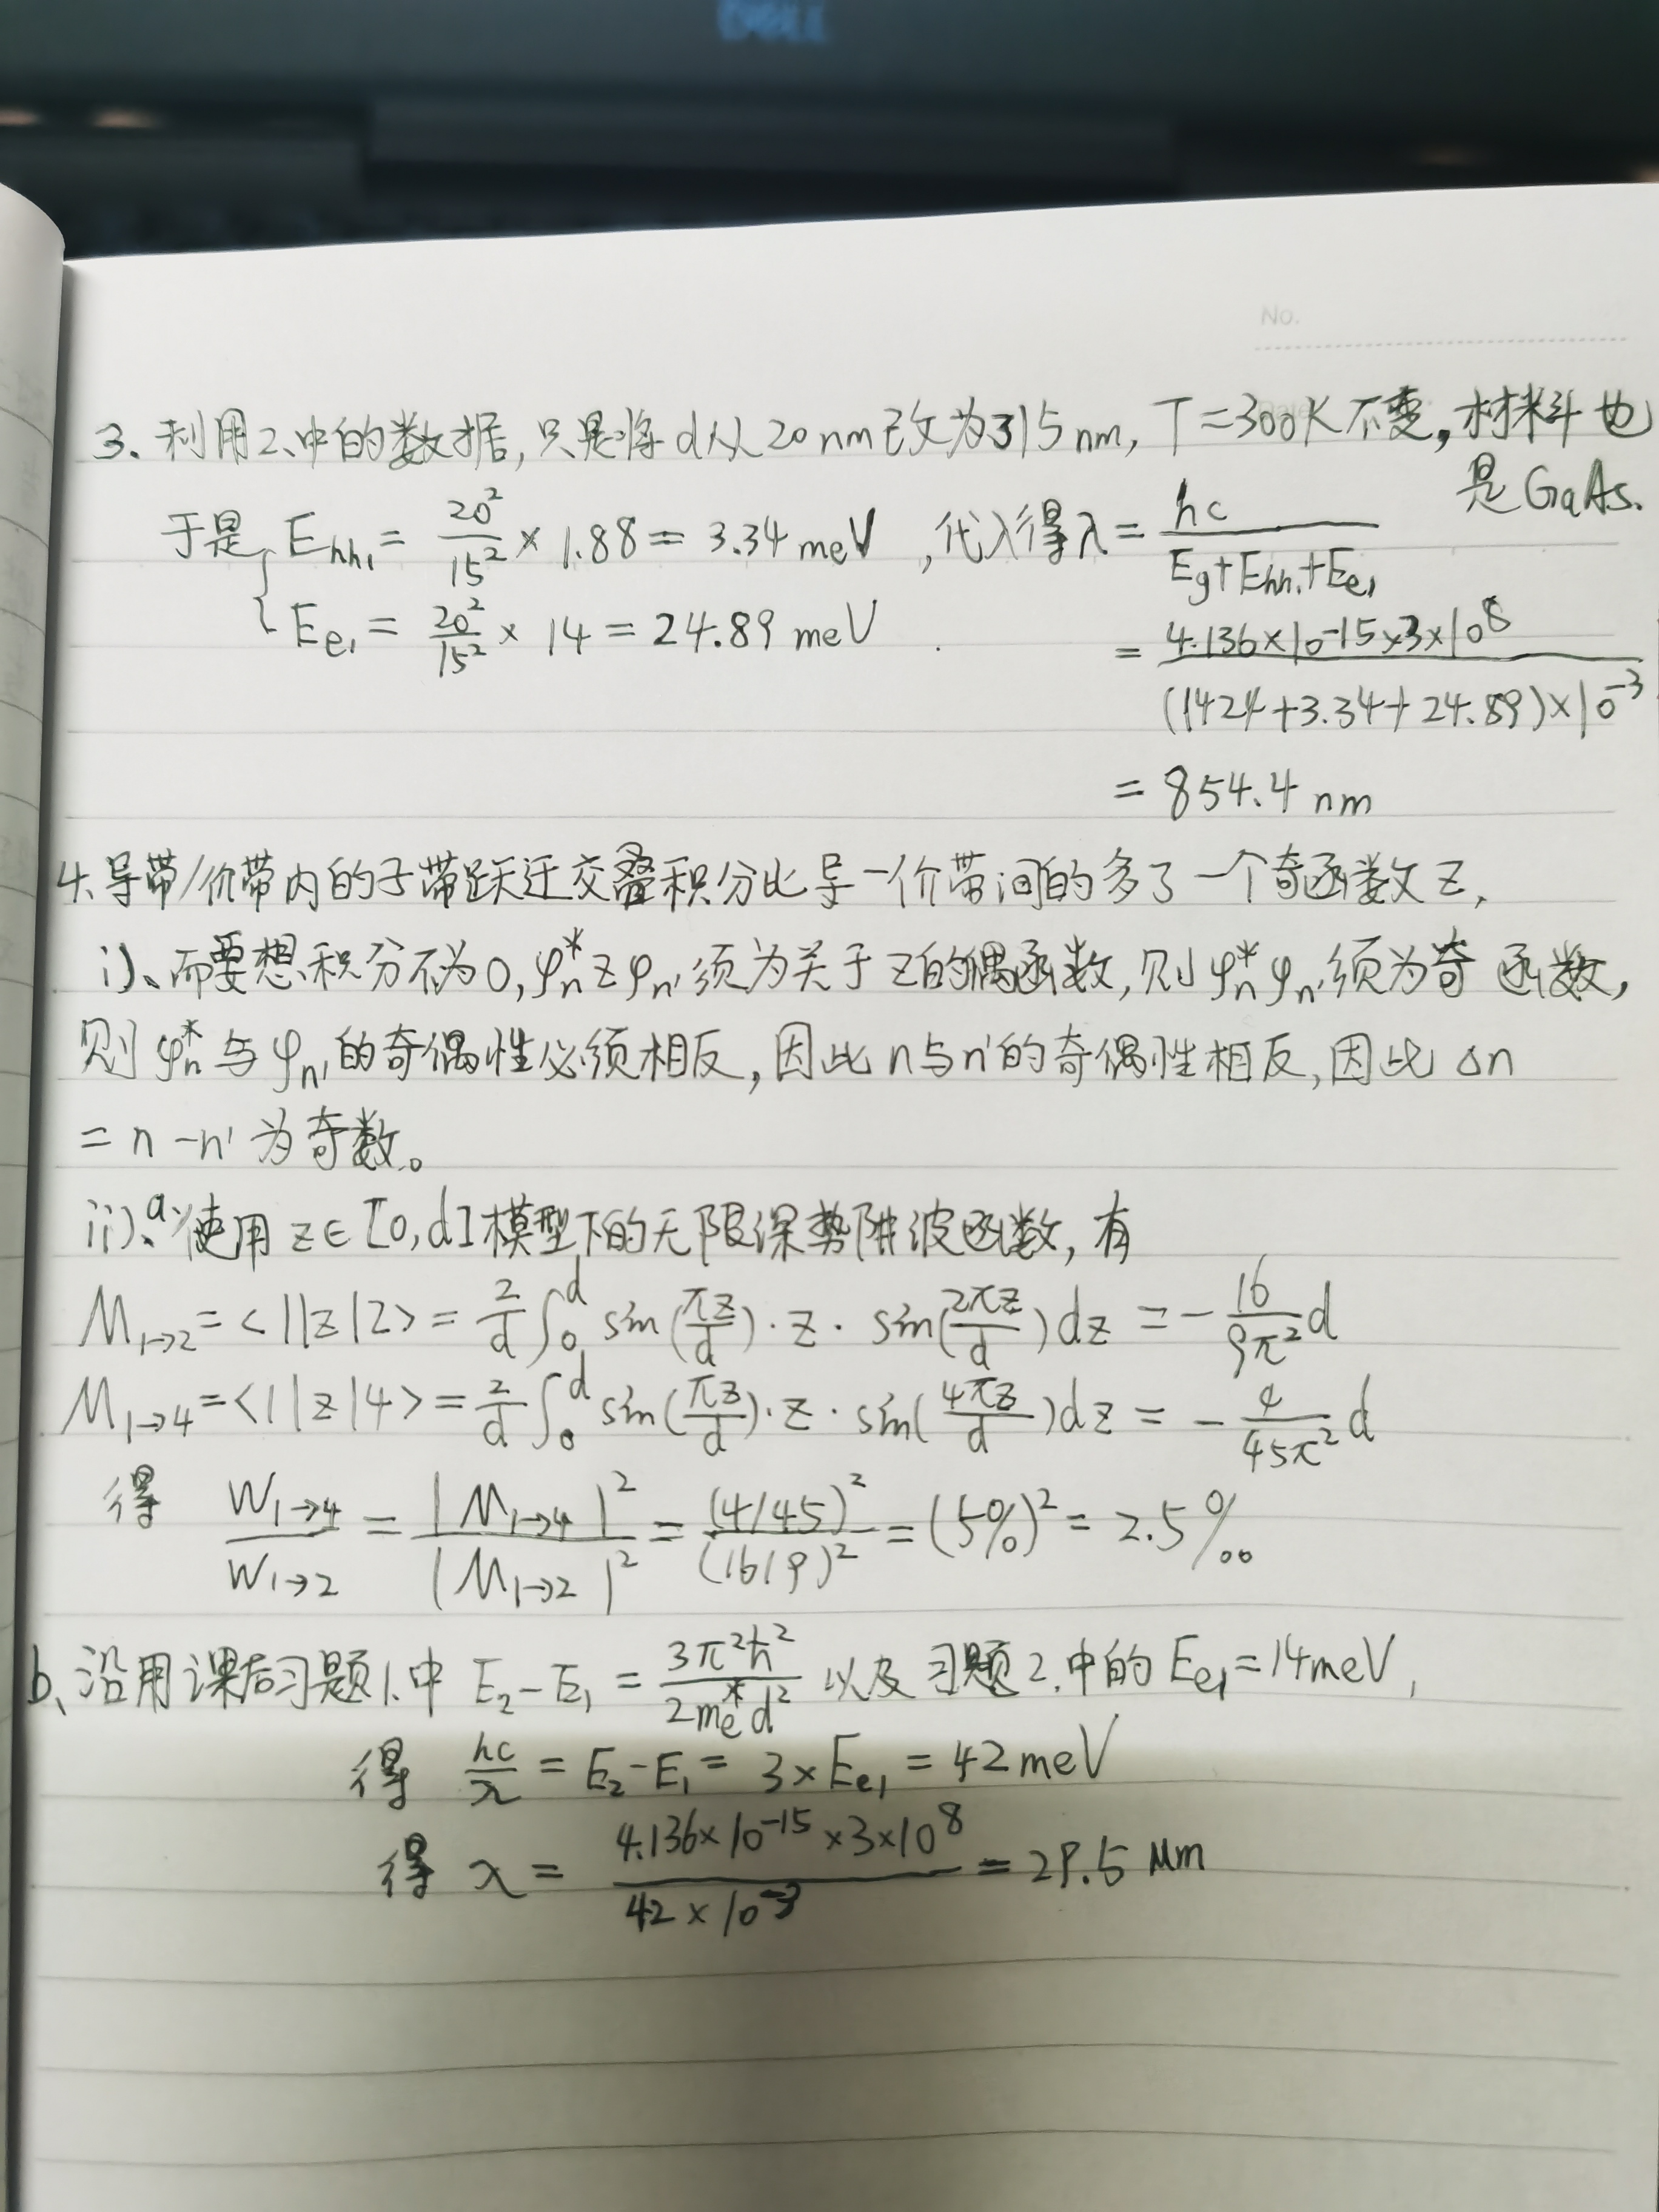 DELL
No.
3. 利用2.中的数据,只是将d从20nm改为315nm, T=300K不变,材料也
是GaAs.
于是 { E_{hh1} = \frac{20^2}{15^2} × 1.88 = 3.34 meV , 代入得λ = \frac{hc}{E_g+E_{hh1}+E_{e1}}
E_{e1} = \frac{20^2}{15^2} × 14 = 24.89 meV
= \frac{4.136×10^{-15}×3×10^8}{(1424+3.34+24.89)×10^{-3}}
= 854.4 nm
4. 导带/价带内的子带跃迁交叠积分比导-价带间的多了一个奇函数z,
i)、而要想积分不为0, φ_n^* z φ_{n'} 须为关于z的偶函数,则 φ_n^* φ_{n'} 须为奇函数,
则 φ_n^* 与 φ_{n'} 的奇偶性必须相反,因此n与n'的奇偶性相反,因此 Δn
= n - n' 为奇数。
ii)、a、使用 z∈[0,d]模型下的无限深势阱波函数,有
M_{1→2} = <1|z|2> = \frac{2}{d} ∫_0^d sin(\frac{πz}{d})·z·sin(\frac{2πz}{d})dz = -\frac{16}{9π^2}d
M_{1→4} = <1|z|4> = \frac{2}{d} ∫_0^d sin(\frac{πz}{d})·z·sin(\frac{4πz}{d})dz = -\frac{4}{45π^2}d
得 \frac{W_{1→4}}{W_{1→2}} = \frac{|M_{1→4}|^2}{|M_{1→2}|^2} = \frac{(4/45)^2}{(16/9)^2} = (5%)^2 = 2.5‰
b、沿用课后习题1.中 E_2-E_1 = \frac{3π^2ħ^2}{2m_e^*d^2} 以及习题2.中的E_{e1}=14meV,
得 \frac{hc}{λ} = E_2-E_1 = 3×E_{e1} = 42meV
得 λ = \frac{4.136×10^{-15}×3×10^8}{42×10^{-3}} = 29.5 μm